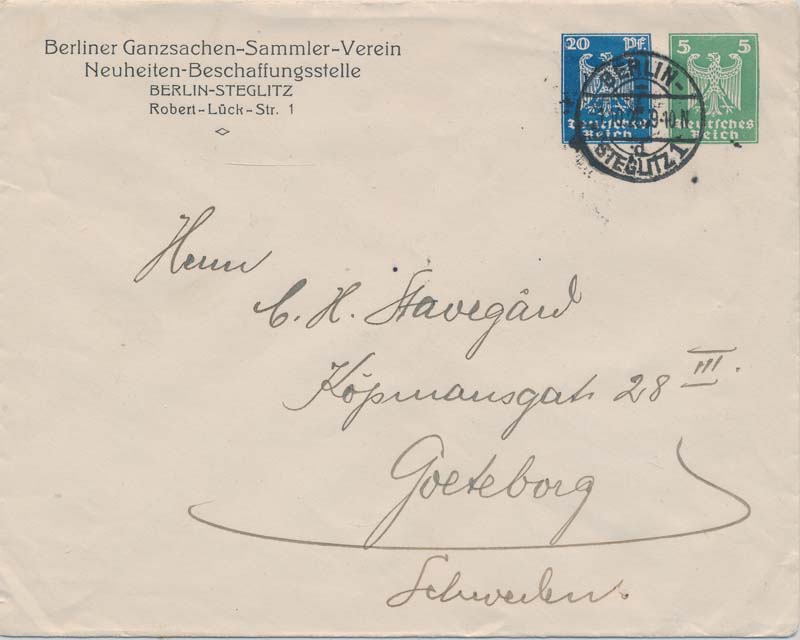 Berliner Ganzsachen-Sammler-Verein
Neuheiten-Beschaffungsstelle
BERLIN-STEGLITZ
Robert-Lück-Str. 1
20 PF
Deutsches
Reich
5 5
Deutsches
Reich
BERLIN-
9-10 N
STEGLITZ 1
Herrn
C. H. Stavegård
Köpmansgat. 28 III.
Goeteborg
Schweden.